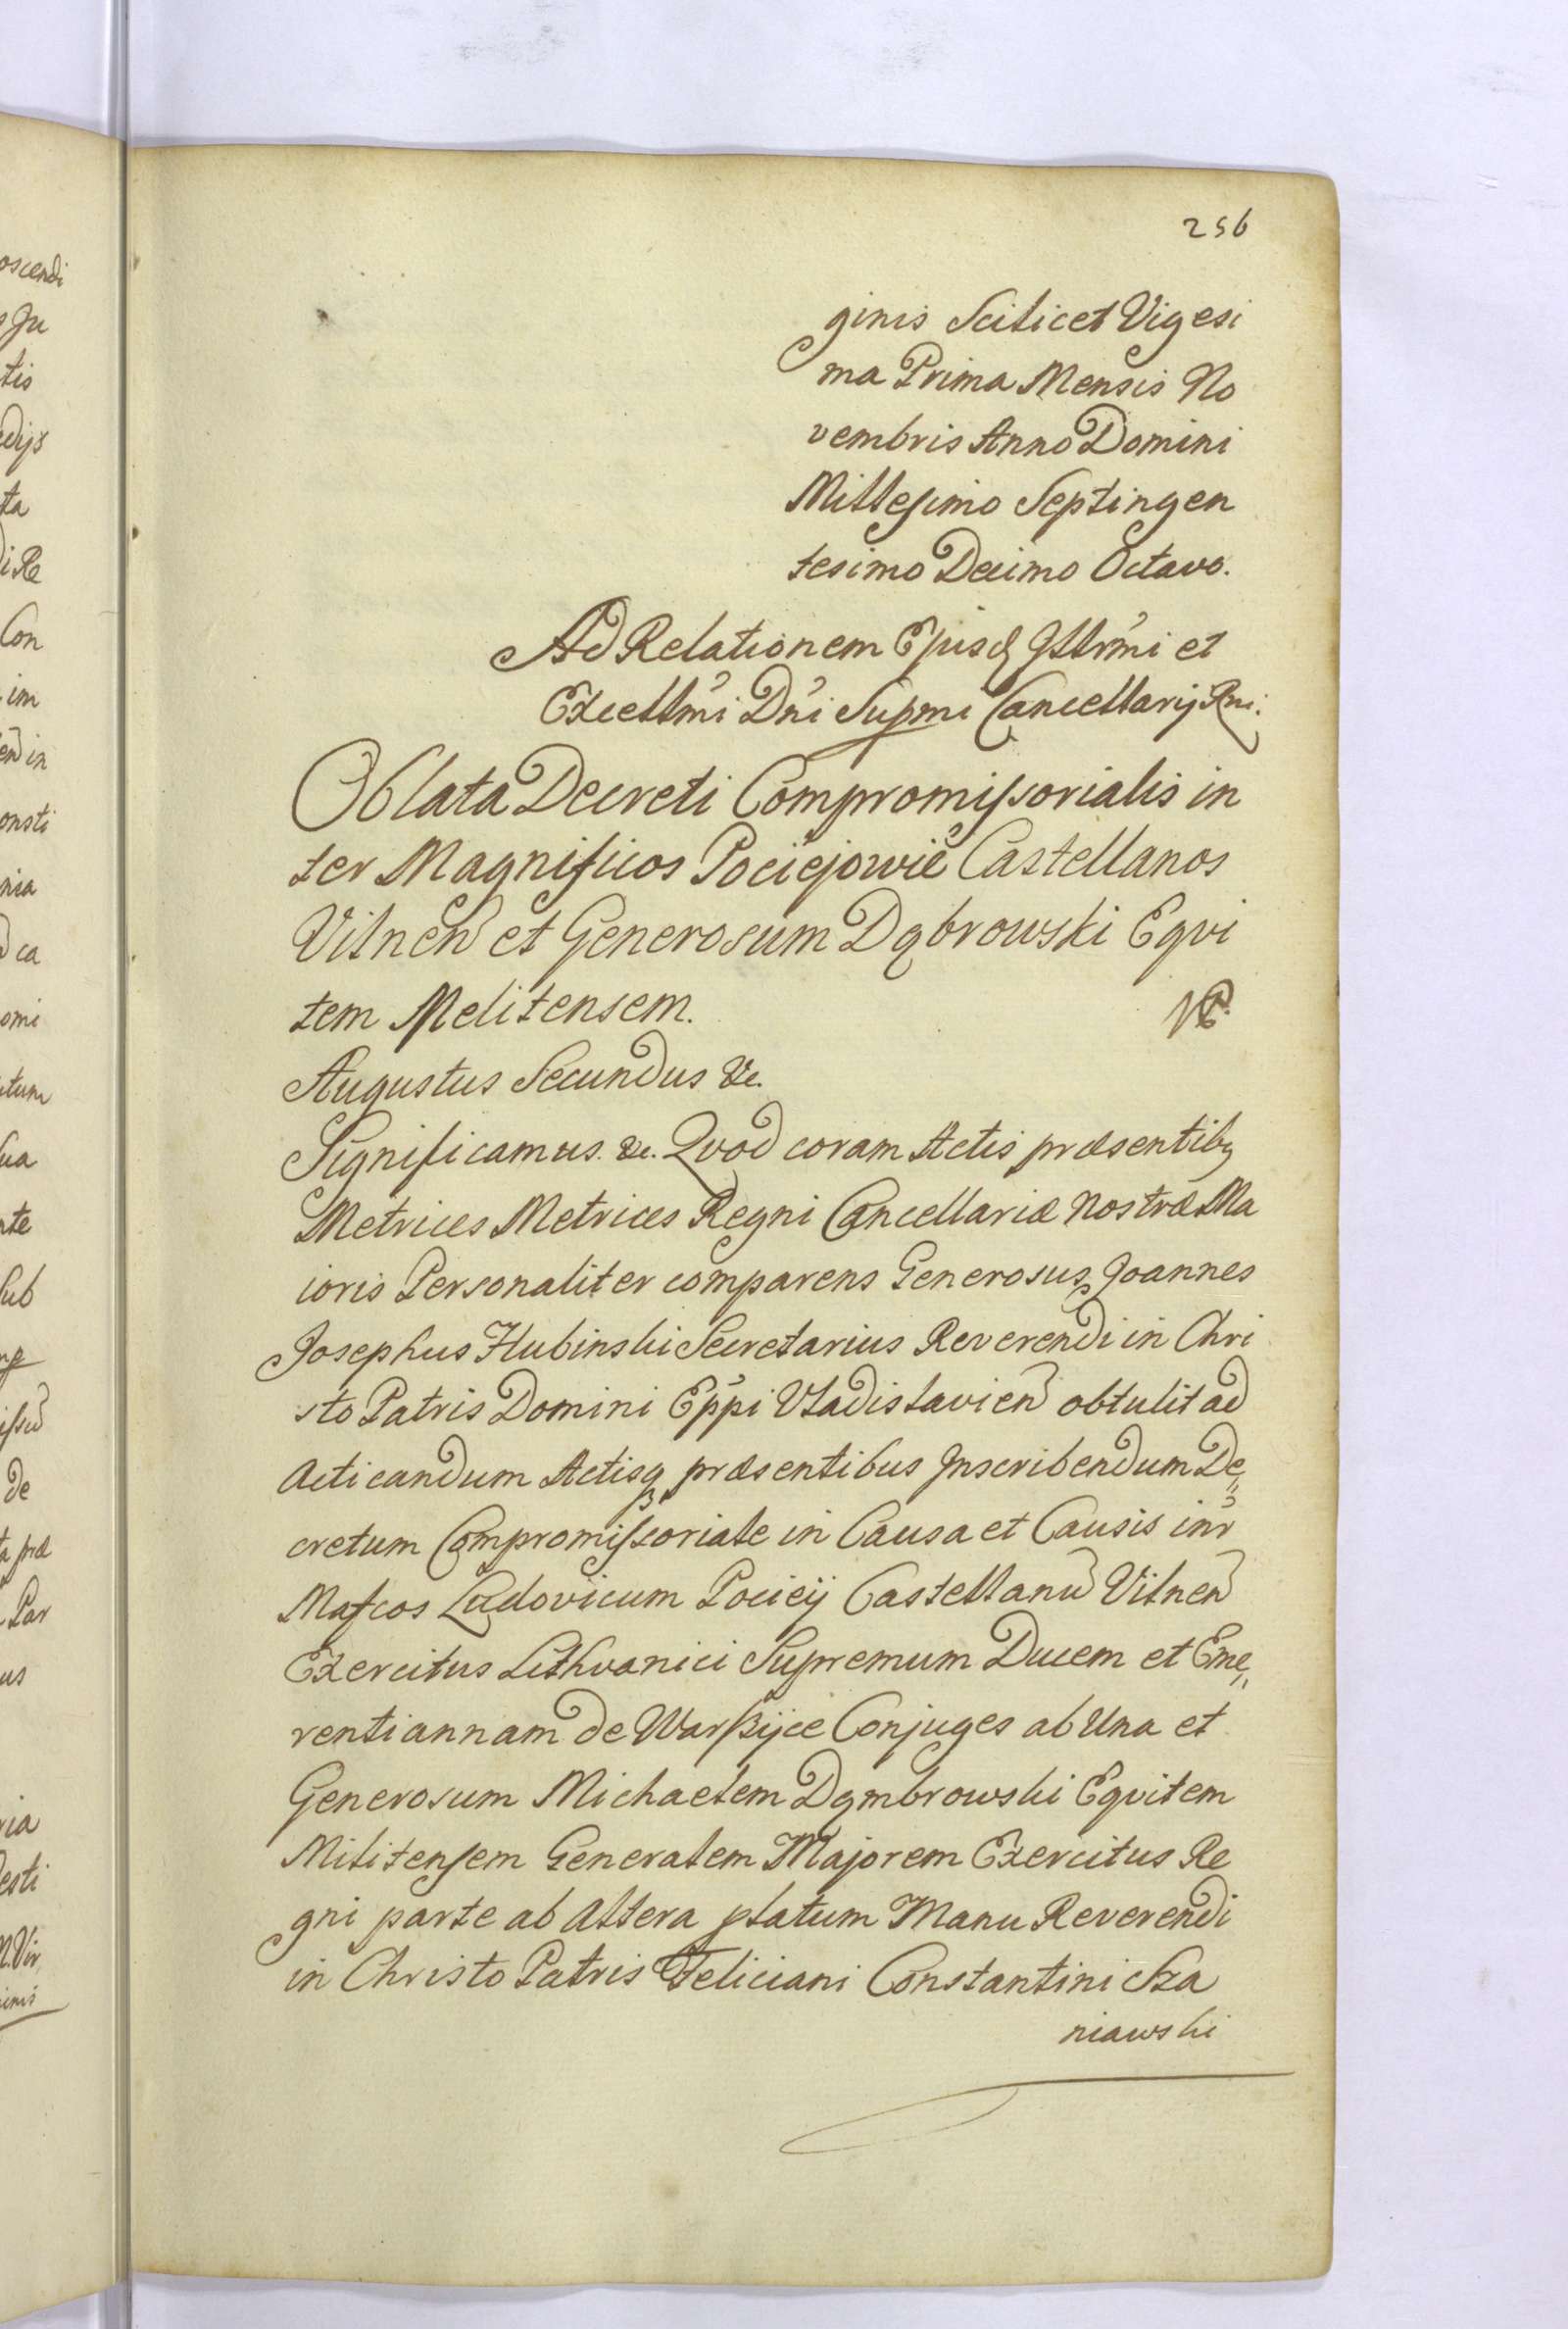 256
ginis Scilicet Vigesi
ma Prima Mensis No
vembris Anno Domini
Millesimo Septingen
tesimo Decimo Octavo.
Ad Relationem Ejusq Illrmi et
Excellmi Dni Supmi Cancellarij Rni.
Oblata Decreti Compromissorialis in
ter Magnificos Pociejowie Castellanos
Vilnen et Generosum Dąbrowski Eqvi
tem Melitensem.
Augustus Secundus &c.
Significamus. &c. Qvod coram Actis præsentibq
Metrices Metrices Regni Cancellariæ Nostræ Ma
ioris Personaliter comparens Generosus Joannes
Josephus Hubinski Secretarius Reverendi in Chri
sto Patris Domini Eppi Vladislavien obtulit ad
Acticandum Actisq præsentibus Inscribendum De„
cretum Compromissoriale in Causa et Causis inr
Mafcos Ludovicum Pociej Castellanu Vilnen
Exercitus Lithvanici Supremum Ducem et Eme„
rentiannam de Warszyce Conjuges ab Una et
Generosum Michaelem Dąmbrowski Eqvitem
Militensem Generalem Majorem Exercitus Re
gni parte ab Altera platum Manu Reverendi
in Christo Patris Feliciani Constantini Sza
niawski